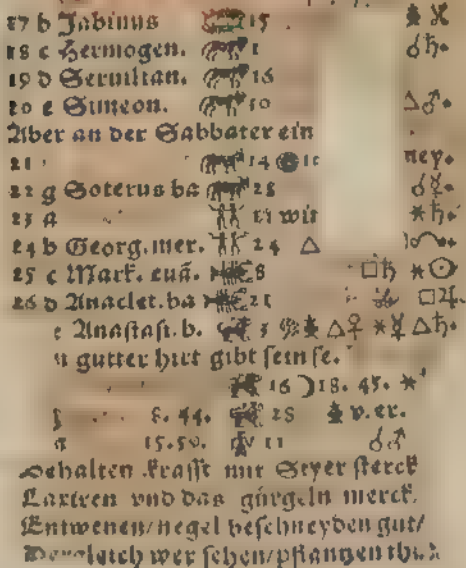 17 b Fabinus 15
18 c Hermogen. 1 ☌♄.
19 d 16
20 e Simeon. △♂.
Aber an der Sabbater ein
21 14 ney.
22 g Soterus ba 28 ☌☿.
23 a wir ✶♄.
24 b Georg. mer. 24 △
25 c Mark. euā. 8 □♄ ✶☉
26 d Anaclet. ba 21 □♃.
e Anastasi. b. △♀ ✶☿ △♄.
gutter hirt gibt sein se.
16 ☽ 18. 45. ✶
8. 44. 28 v. er.
15.50. 11 ☌♂
behalten krafft mit Steyer sterck
Laxiren vnd das gürgeln merck.
Entwenen/negel beschneyden gut/
wer sehen/pflantzen